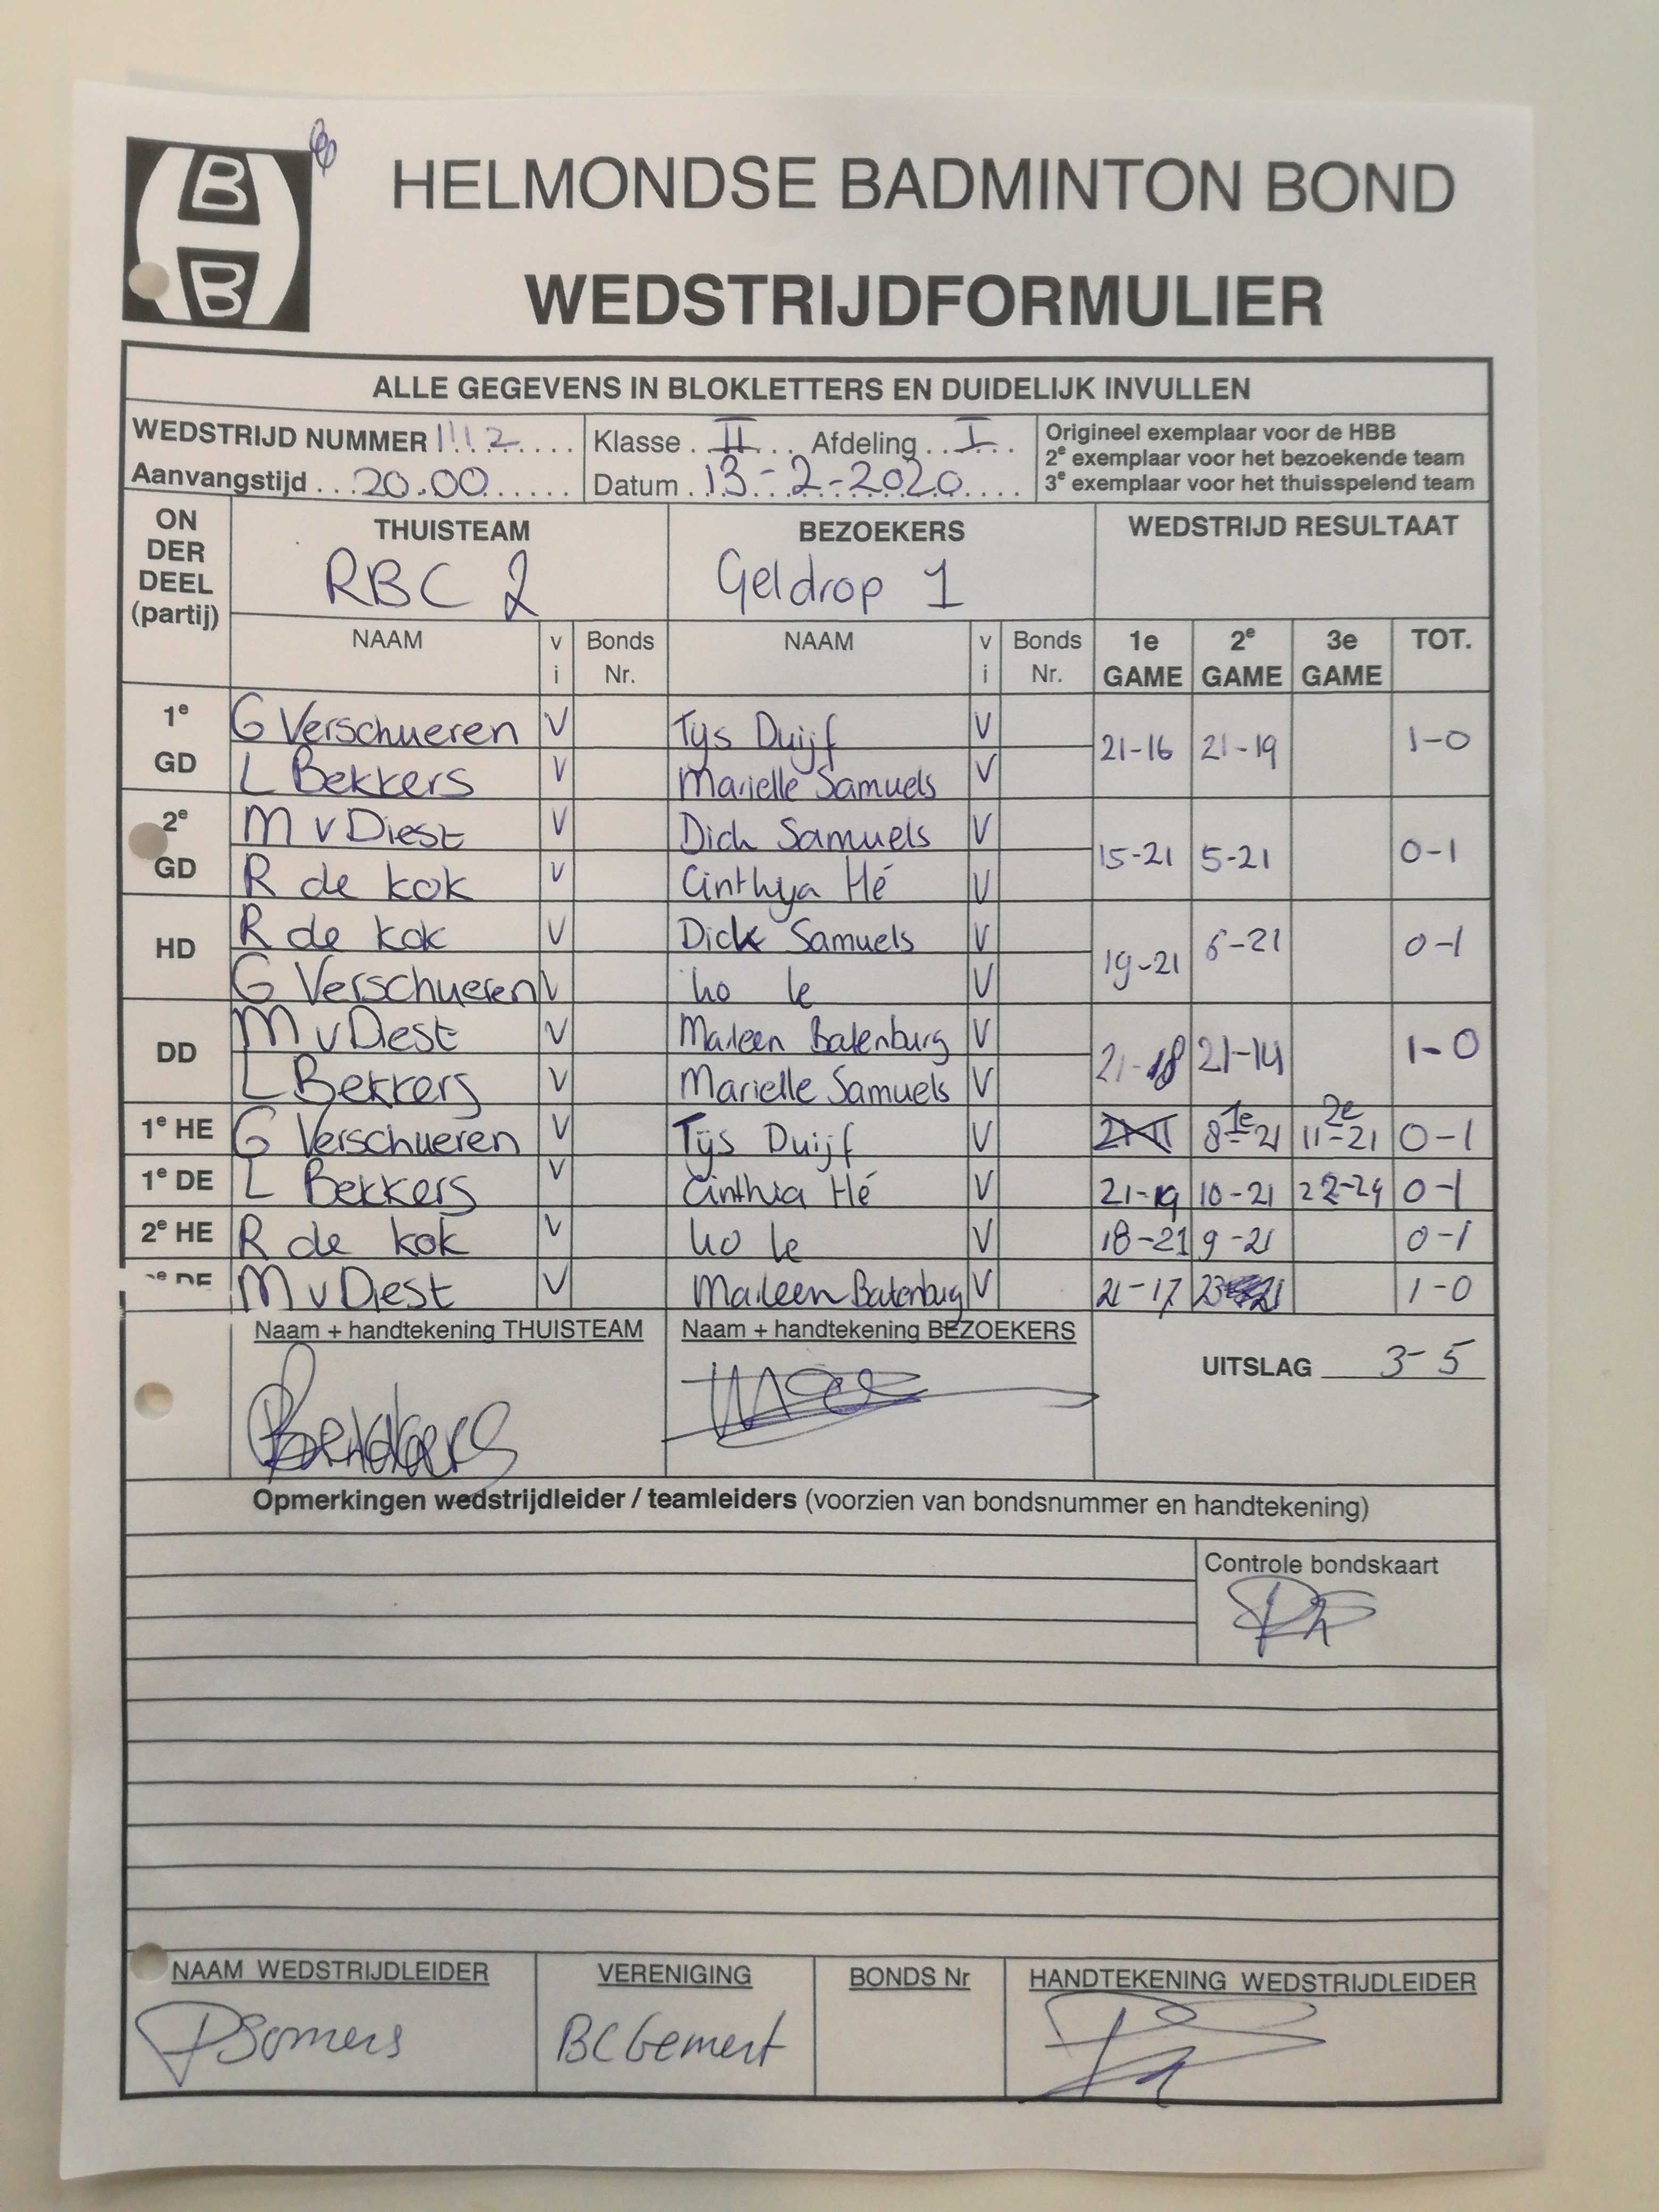 HELMONDSE BADMINTON BOND
WEDSTRIJDFORMULIER
ALLE GEGEVENS IN BLOKLETTERS EN DUIDELIJK INVULLEN
WEDSTRIJD NUMMER 1112 Klasse II Afdeling I
Aanvangstijd 20.00 Datum 13-2-2020
Origineel exemplaar voor de HBB
2e exemplaar voor het bezoekende team
3e exemplaar voor het thuisspelend team
ON DER DEEL (partij)
THUISTEAM BEZOEKERS WEDSTRIJD RESULTAAT
RBC 2 Geldrop 1
NAAM v i Bonds Nr. NAAM v i Bonds Nr. 1e GAME 2e GAME 3e GAME TOT.
1e GD
G Verschueren V Tijs Duijf V 21-16 21-19 1-0
L Bekkers V Marielle Samuels V
2e GD
M v Diest V Dick Samuels V 15-21 5-21 0-1
R de kok V Cinthya Hé V
HD
R de kok V Dick Samuels V 19-21 6-21 0-1
G Verschueren V ho le V
DD
M v Diest V Marleen Batenburg V 21-18 21-14 1-0
L Bekkers V Marielle Samuels V
1e 2e
1e HE G Verschueren V Tijs Duijf V 8-21 11-21 0-1
1e DE L Bekkers V Cinthia Hé V 21-19 10-21 22-24 0-1
2e HE R de kok V ho le V 18-21 9-21 0-1
DE M v Diest V Marleen Batenburg V 21-17 23 21 1-0
Naam + handtekening THUISTEAM Naam + handtekening BEZOEKERS
UITSLAG 3-5
Opmerkingen wedstrijdleider / teamleiders (voorzien van bondsnummer en handtekening)
Controle bondskaart
NAAM WEDSTRIJDLEIDER VERENIGING BONDS Nr HANDTEKENING WEDSTRIJDLEIDER
P Somers BC Gemert